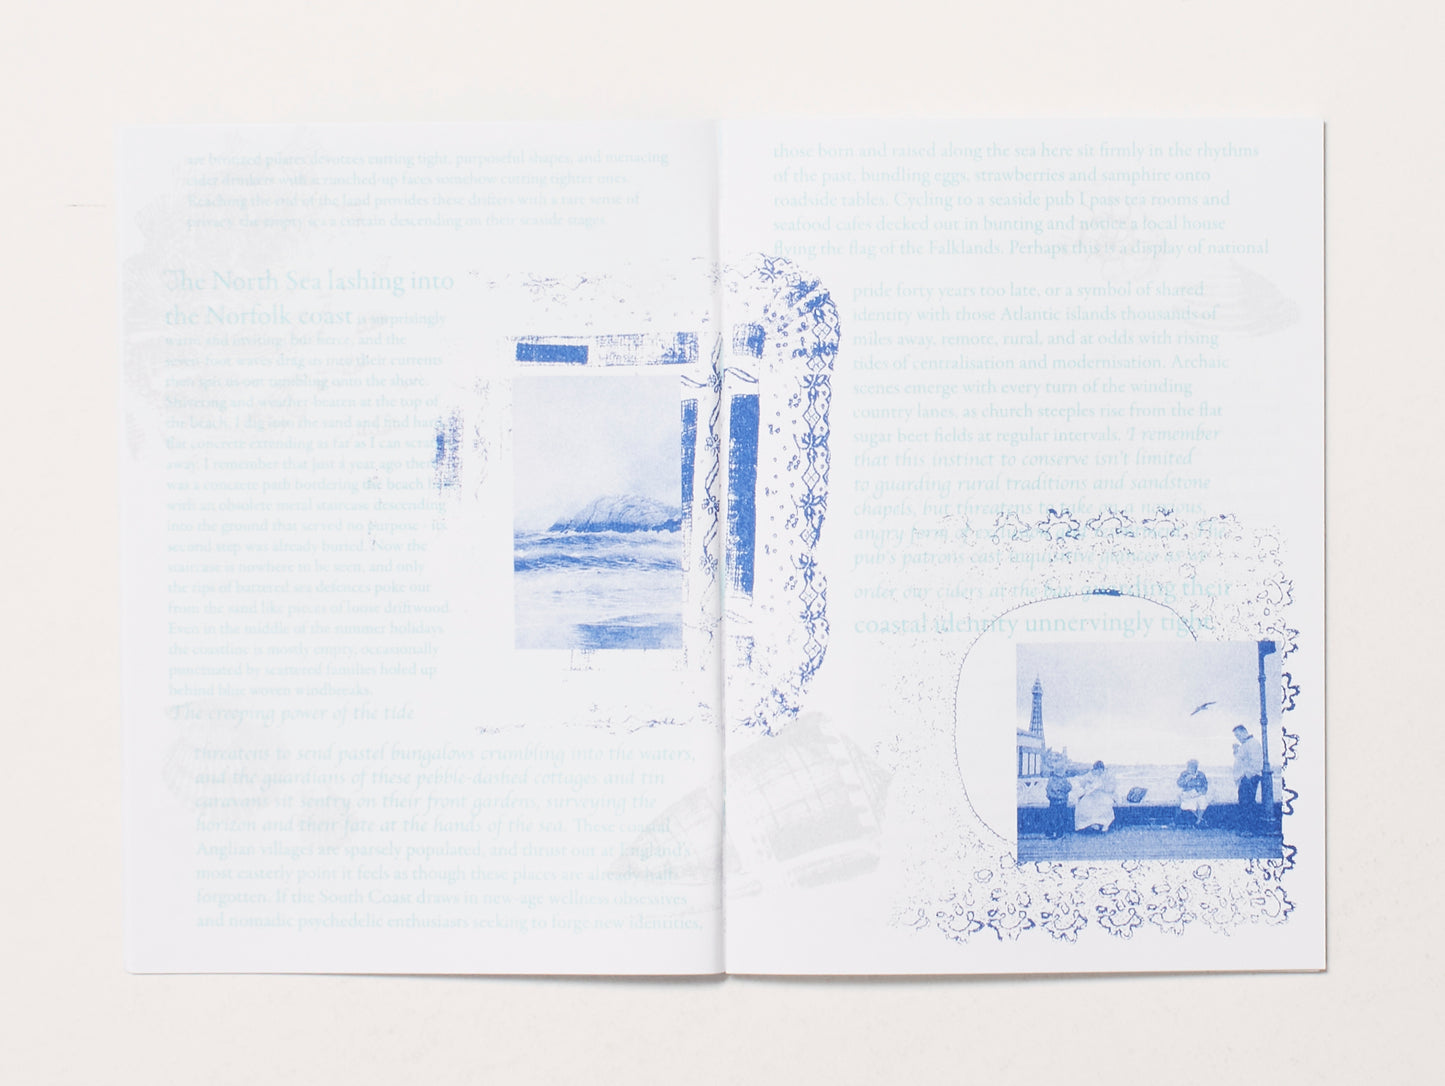 are bronzed pilates devotees cutting tight, purposeful shapes, and menacing
cider drinkers with scrunched-up faces somehow cutting tighter ones.
Reaching the end of the land provides these drifters with a rare sense of
privacy, the empty sea a curtain descending on their seaside stages.
The North Sea lashing into
the Norfolk coast is surprisingly
warm and inviting, but fierce, and the
seven-foot waves drag us into their currents
then spit us out tumbling onto the shore.
Shivering and weather-beaten at the top of
the beach, I dig into the sand and find hard,
flat concrete extending as far as I can scratch
away. I remember that just a year ago there
was a concrete path bordering the beach
with an obsolete metal staircase descending
into the ground that served no purpose - its
second step was already buried. Now the
staircase is nowhere to be seen, and only
the tips of battered sea defences poke out
from the sand like pieces of loose driftwood.
Even in the middle of the summer holidays
the coastline is mostly empty, occasionally
punctuated by scattered families holed up
behind blue woven windbreaks.
The creeping power of the tide
threatens to send pastel bungalows crumbling into the waters,
and the guardians of these pebble-dashed cottages and tin
caravans sit sentry on their front gardens, surveying the
horizon and their fate at the hands of the sea. These coastal
Anglian villages are sparsely populated, and thrust out at England's
most easterly point it feels as though these places are already half-
forgotten. If the South Coast draws in new-age wellness obsessives
and nomadic psychedelic enthusiasts seeking to forge new identities,
those born and raised along the sea here sit firmly in the rhythms
of the past, bundling eggs, strawberries and samphire onto
roadside tables. Cycling to a seaside pub I pass tea rooms and
seafood cafes decked out in bunting and notice a local house
flying the flag of the Falklands. Perhaps this is a display of national
pride forty years too late, or a symbol of shared
identity with those Atlantic islands thousands of
miles away, remote, rural, and at odds with rising
tides of centralisation and modernisation. Archaic
scenes emerge with every turn of the winding
country lanes, as church steeples rise from the flat
sugar beet fields at regular intervals. I remember
that this instinct to conserve isn't limited
to guarding rural traditions and sandstone
chapels, but threatens to take on a noxious,
angry form of exclusion and
pub's patrons cast inquisitive glances as we
order our ciders at the bar, guarding their
coastal identity unnervingly tight.